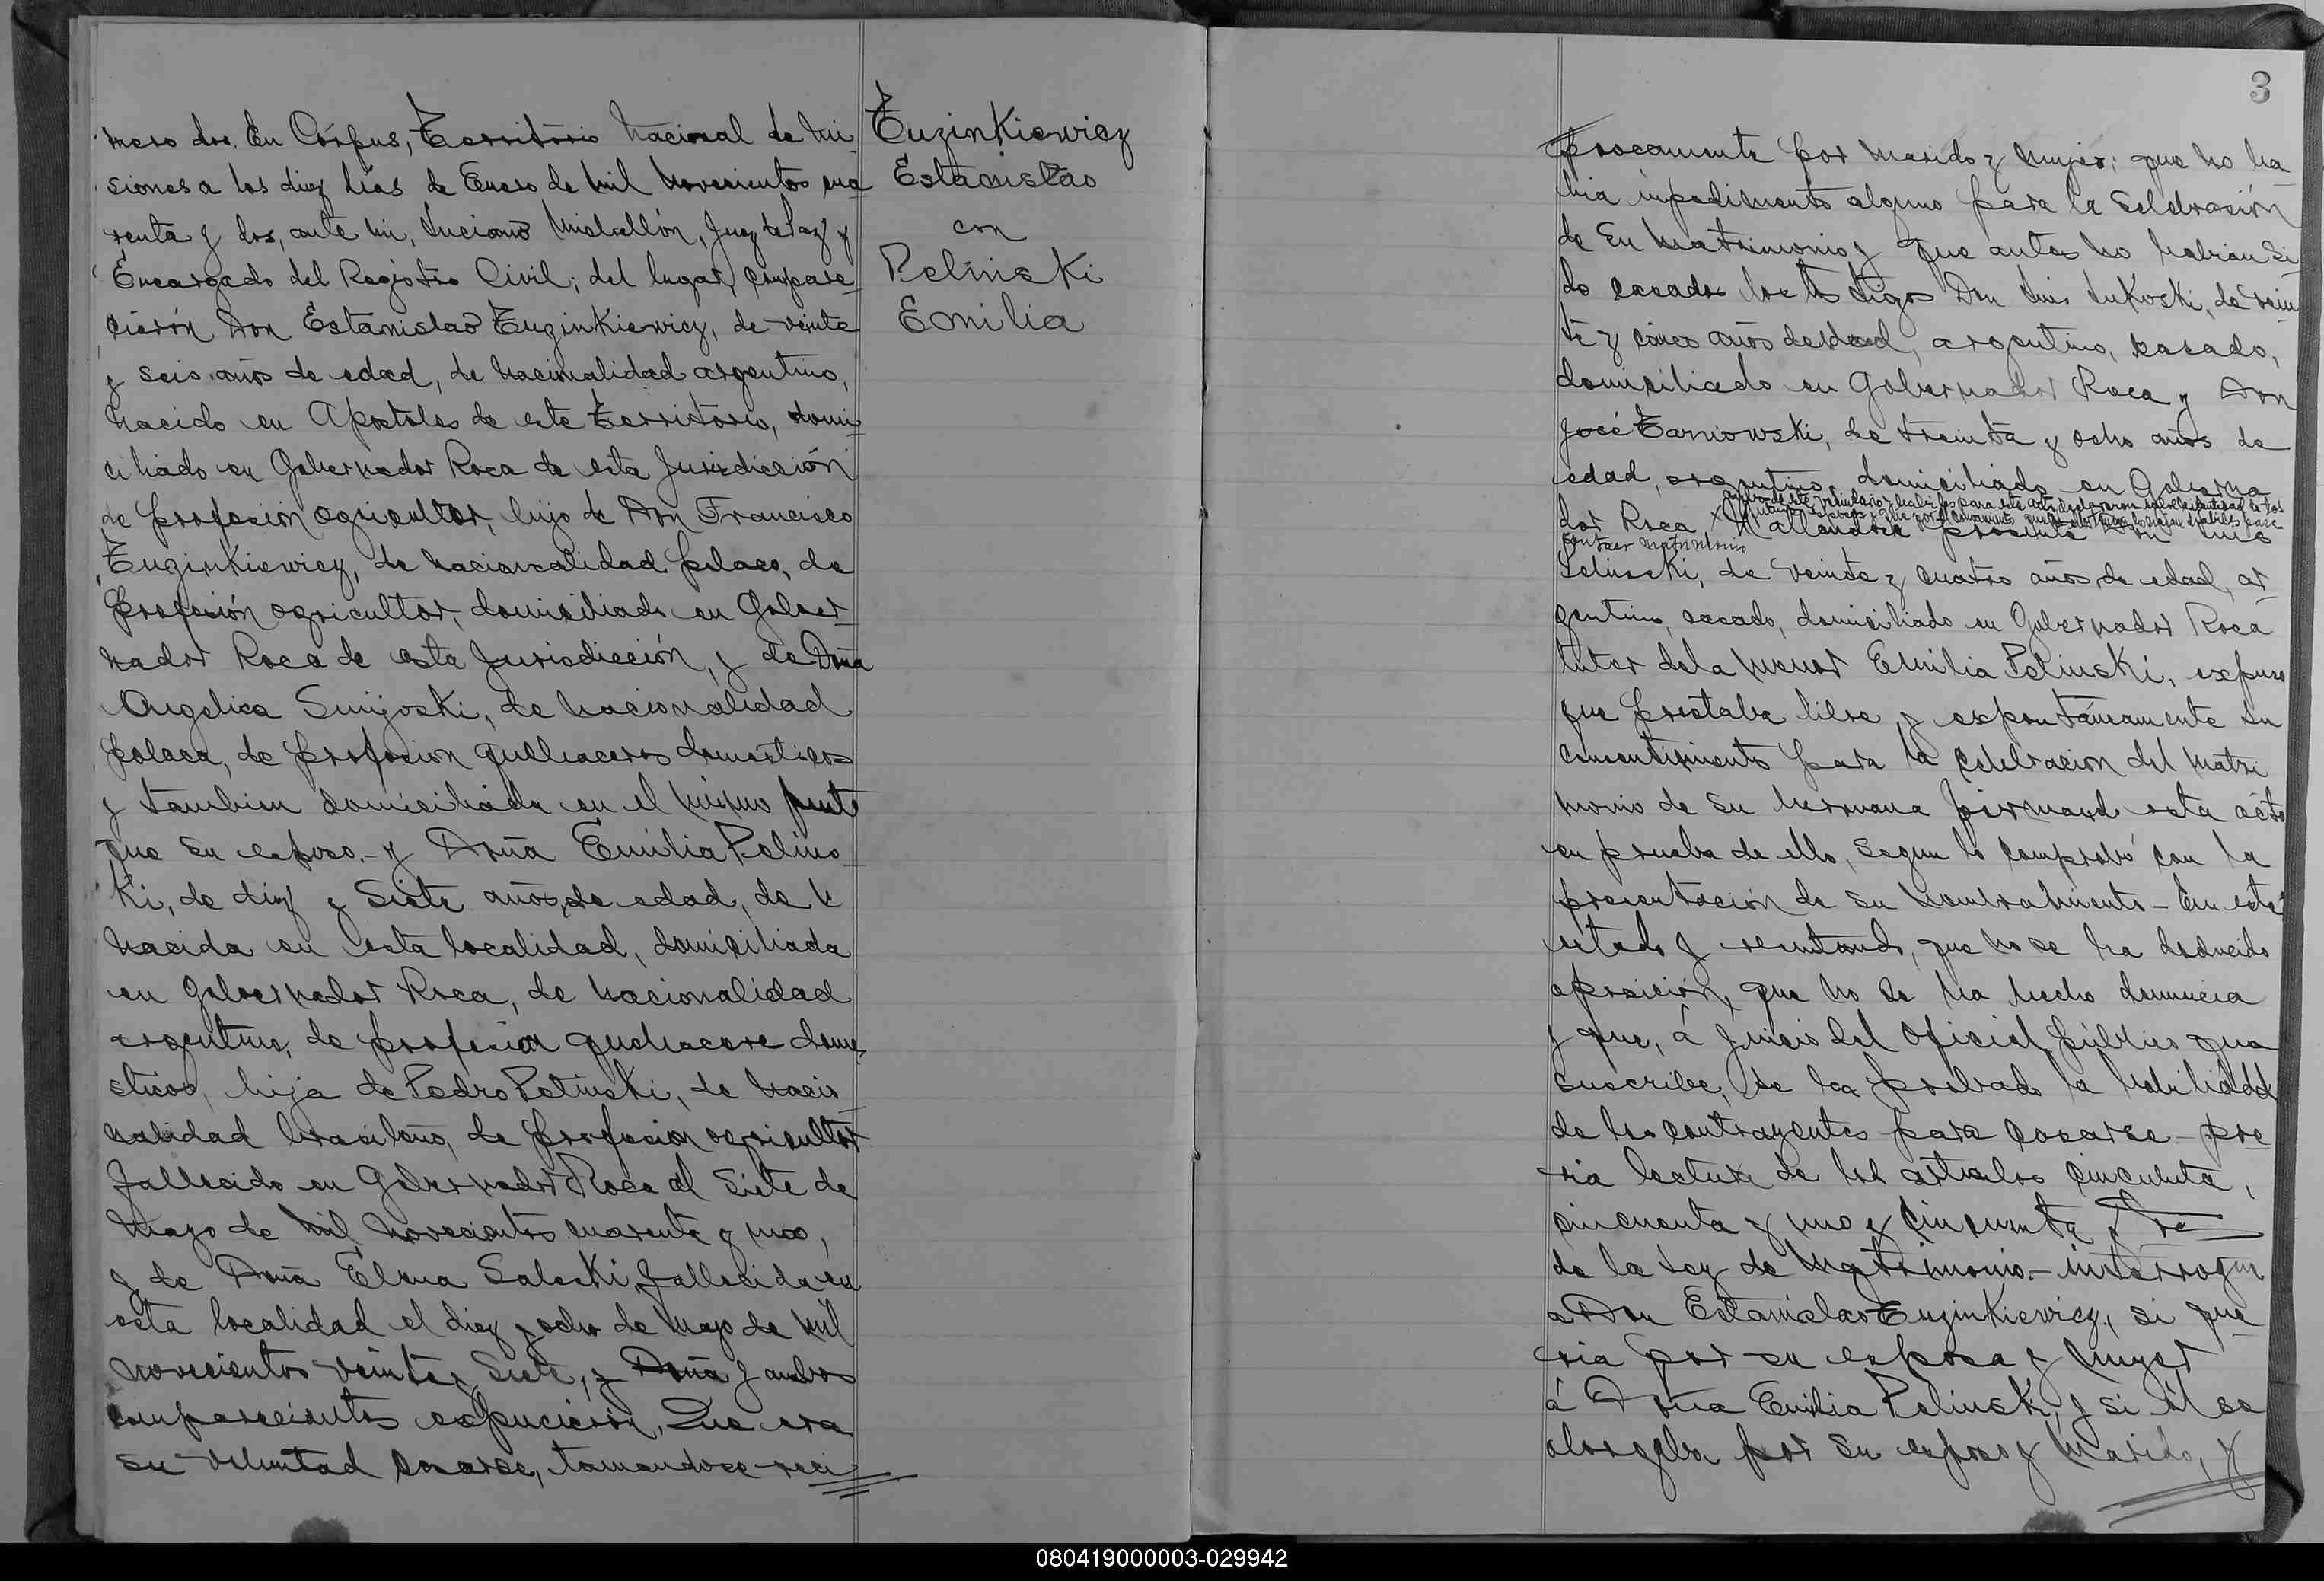 mero dos. En Corpus, Territorio Nacional de Mi
siones a los diez días de Enero de mil novecientos cua
renta y dos, ante mi, Luciano Micallón, Juez de Paz y
Encargado del Registro Civil; del lugar, compare
cierón Don Estanislao Tuzinkiewicz, de veinte
y seis años de edad, de nacionalidad argentino,
nacido en Apostoles de este Territorio, domi
ciliado en Gobernador Roca de esta Jurisdicción
de profesión agricultor, hijo de Don Francisco
Tuzinkiewicz, de nacionalidad polaco, de
profesión agricultor, domiciliado en Gober
nador Roca de esta Jurisdicción, y de Doña
Angelica, de nacionalidad
polaca, de profesion quehaceros domesticos
y tambien domiciliada en el mismo punto
que su esposo.- y Doña Emilia Pelins
ki, de diez y siete años, de edad, de
nacida en esta localidad, domiciliada
en Gobernador Roca, de nacionalidad
argentina, de profesion quehacere dome
sticos, hija de Pedro Pelinski, de nacio
nalidad brasileño, de profesion agricultor
fallecido en Gobernador Roca el siete de
Mayo de mil novecientos cuarenta y uno,
y de Doña Elena Saleski, fallecida en
esta localidad el diez y ocho de Mayo de mil
novecientos veinte y siete, y Doña y ambos
comparecientes expucierón, Que era
su voluntad casarse, tomandose reci
Tuzinkiewicz
Estanislao
con
Pelinski
Emilia
3
procamente por marido y mujer; que no ha
bia inpedimento alguno para la celebración
de su matrimonio y que antes no habian si
do casados los testigos Don Luis Lukoski, de vein
te y cinco años de edad, argentino, casado,
domiciliado en Gobernador Roca y Don
José Tarnowski, de treinta y ocho años de
edad, argentino, domiciliado en Goberna
ambos de este vecindario y habiles para este acto, declararon sobre la identidad de los
futuros esposos y que por el conocimiento que de ellos los creian habiles para
dor Roca x Hallandose presente Don Luis
contraer matrimonio
Pelinski, de veinte y cuatro años de edad, ar
gentino, casado, domiciliado en Gobernador Roca
tutor dela menor Emilia Pelinski, expuso
que prestaba libre y espontáneamente su
concentimiento para la celebracion del matri
monio de su hermana firmando esta acto
en prueba de ello, segun lo comprobó con la
presentación de su nombramiento - En este
estado y resultando, que no se ha deducido
oposición, que no se ha hecho denuncia
y que, á juicio del oficial público que
suscribe, se ha probado la habilidad
de los contrayentes para casarse - pre
via lectura de los artículos cincuenta,
cincuenta y uno y cincuenta y tre
de la Ley de Matrimonio.- interrogue
a Don Estanislao Tuzinkiewicz, si que
ria por su esposa y muger
á Doña Emilia Pelinski, y si él se
otorgaba por su esposo y marido, y
080419000003-029942